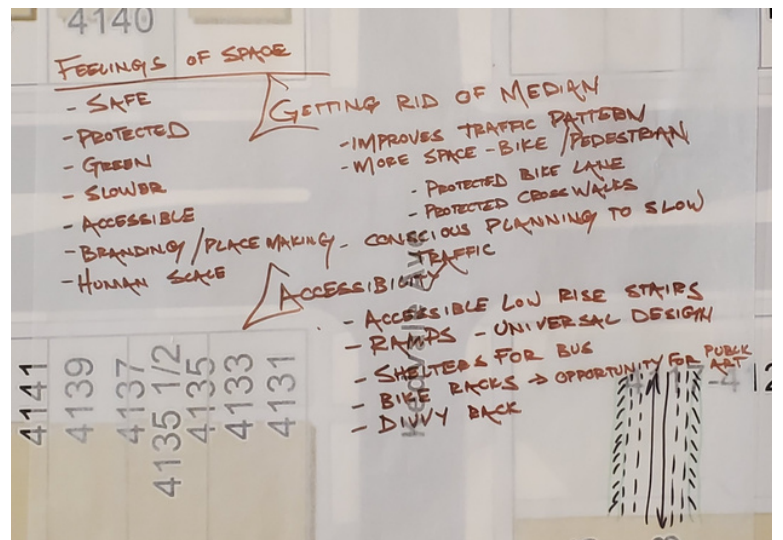 4140
FEELINGS OF SPACE
- SAFE
- PROTECTED
- GREEN
- SLOWER
- ACCESSIBLE
- BRANDING/PLACE MAKING
- HUMAN SCALE
GETTING RID OF MEDIAN
- IMPROVES TRAFFIC PATTERN
- MORE SPACE - BIKE/PEDESTRIAN
- PROTECTED BIKE LANE
- PROTECTED CROSSWALKS
- CONSCIOUS PLANNING TO SLOW
TRAFFIC
ACCESSIBILITY
- ACCESSIBLE LOW RISE STAIRS
- RAMPS - UNIVERSAL DESIGN
- SHELTERS FOR BUS
- BIKE RACKS → OPPORTUNITY FOR PUBLIC
ART
- DIVVY BACK
4141
4139
4137
4135 1/2
4135
4133
4131